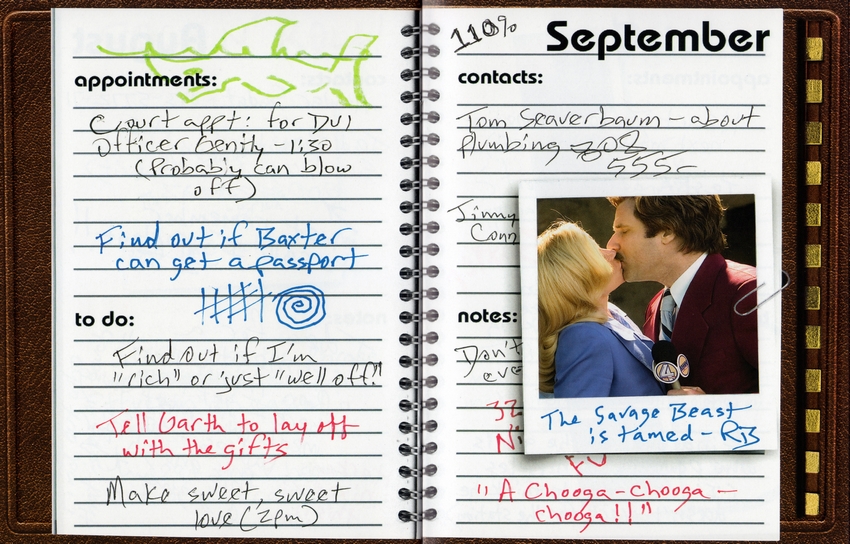 appointments:
Court appt: for DUI
Officer Genity - 1:30
(Probably can blow
off)
Find out if Baxter
can get a passport
to do:
Find out if I'm
"rich" or just "well off."
Tell Garth to lay off
with the gifts
Make sweet, sweet
love (2pm)
110%
September
contacts:
Tom Seaverbaum - about
Plumbing 308
555-
Jimmy
Conn
notes:
Don't
eve
32
Ni
4
The Savage Beast
is tamed - RB
"A Chooga-chooga-
chooga!!"